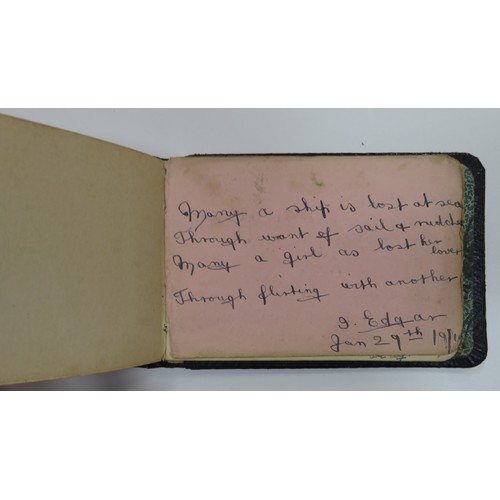 Many a ship is lost at sea
Through want of sail & rudder
Many a girl as lost her lover
Through flirting with another
Edgar
Jan 29th